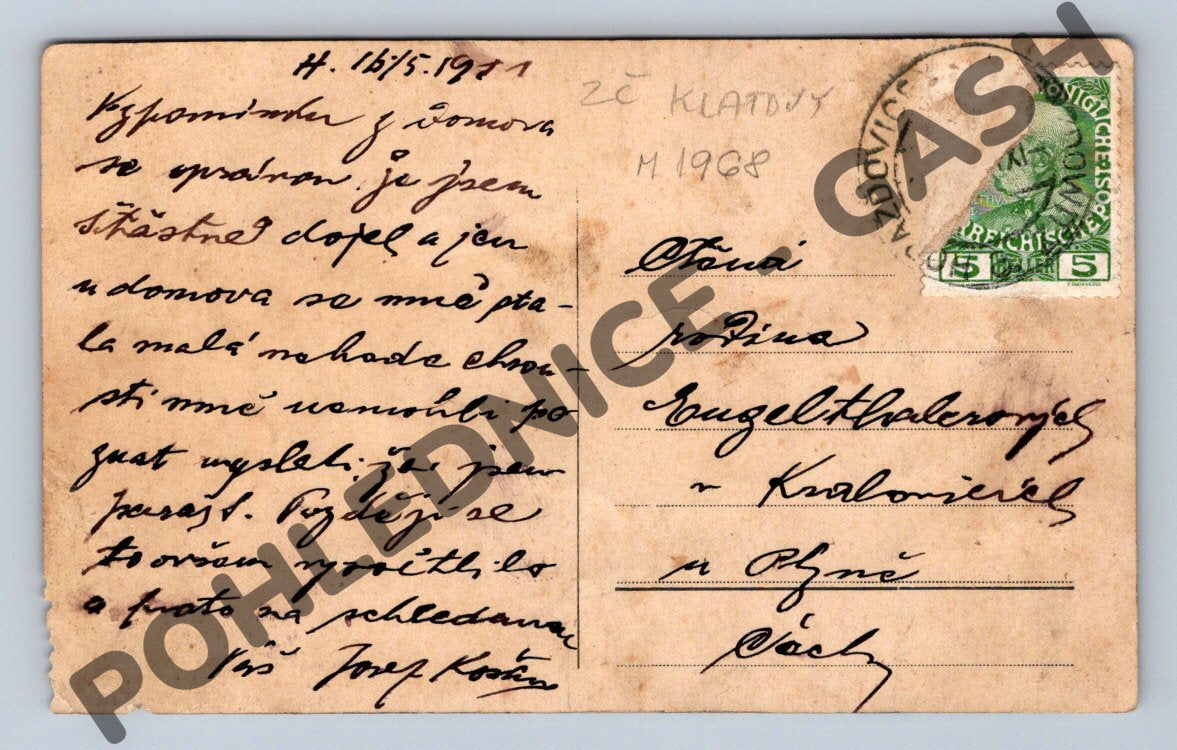 H. 16/5. 1911
Vzpomínku z domova
se správou že jsem
šťastně dojel a jen
u domova se mně pta-
la malá nahoda chrou-
sti mně nemohli po
znat mysleli že jsem
parást. Později se
to ovšem vysvětlilo
a proto na schledanou
Váš Josef
ZČ KLATOVY
M 1968
Ctěná
rodina
Engelthalerových
v Kralovicích
u Plzně
Čechy
RAŽĎOVICE
KÖNIGLICHE POST
ÖSTREICHISCHE
5 HELLER 5
POHLEDNICE - GASH